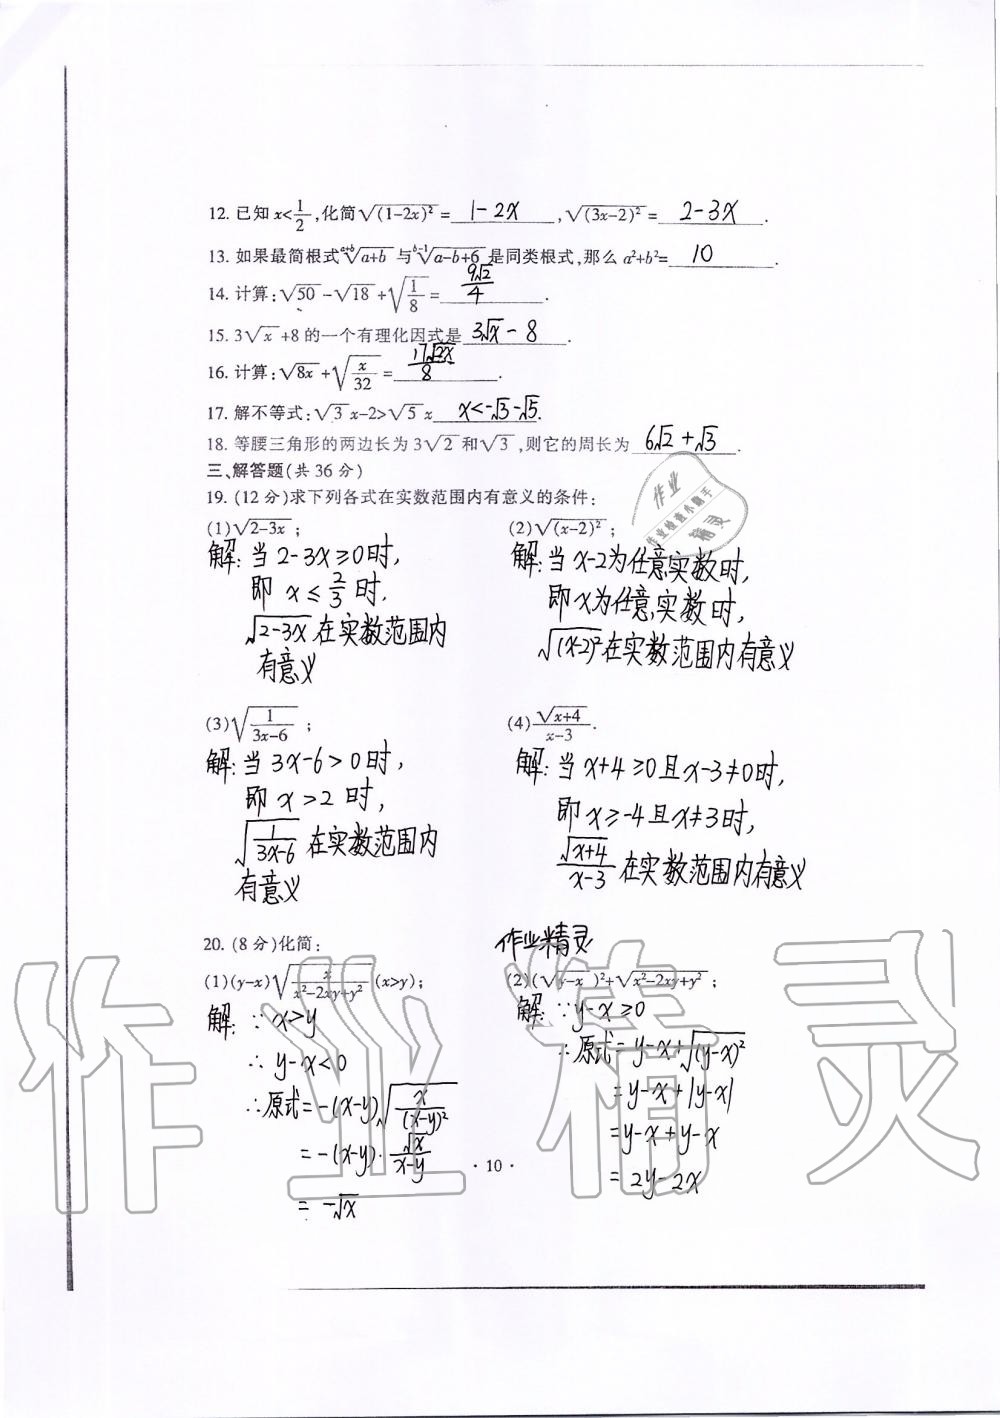 12. 已知 x<1/2, 化简√(1-2x)² = 1-2x , √(3x-2)² = 2-3x .
13. 如果最简根式 ᵃ⁺ᵇ√a+b 与 ᵇ⁻¹√a-b+6 是同类根式, 那么 a²+b²= 10 .
14. 计算: √50 - √18 + √(1/8) = 9√2/4 .
15. 3√x +8 的一个有理化因式是 3√x - 8 .
16. 计算: √8x + √(x/32) = 17√2x/8 .
17. 解不等式: √3 x-2>√5 x x<-√3-√5.
18. 等腰三角形的两边长为 3√2 和√3, 则它的周长为 6√2+√3 .
三、解答题(共 36 分)
19. (12 分)求下列各式在实数范围内有意义的条件:
(1)√2-3x ;
解: 当 2-3x≥0时,
即 x≤2/3时.
√2-3x 在实数范围内
有意义
(2)√(x-2)² ;
解: 当 x-2为任意实数时,
即x为任意实数时,
√(x-2)² 在实数范围内有意义
(3)√(1/(3x-6)) ;
解: 当 3x-6>0时,
即 x>2 时,
√(1/(3x-6)) 在实数范围内
有意义
(4) √x+4/(x-3) .
解: 当 x+4≥0且x-3≠0时,
即 x≥-4且x≠3时,
√x+4/(x-3) 在实数范围内有意义
20. (8 分)化简:
(1)(y-x)√(x/(x²-2xy+y²)) (x>y);
解: ∵x>y
∴ y-x<0
∴原式=-(x-y)√(x/(x-y)²)
=-(x-y)·√x/(x-y)
= -√x
作业精灵
(2)(√y-x )²+√x²-2xy+y² ;
解: ∵y-x≥0
∴原式= y-x+√(y-x)²
=y-x+|y-x|
=y-x+y-x
= 2y-2x
· 10 ·
作业
作业检查小助手
精灵
作业精灵